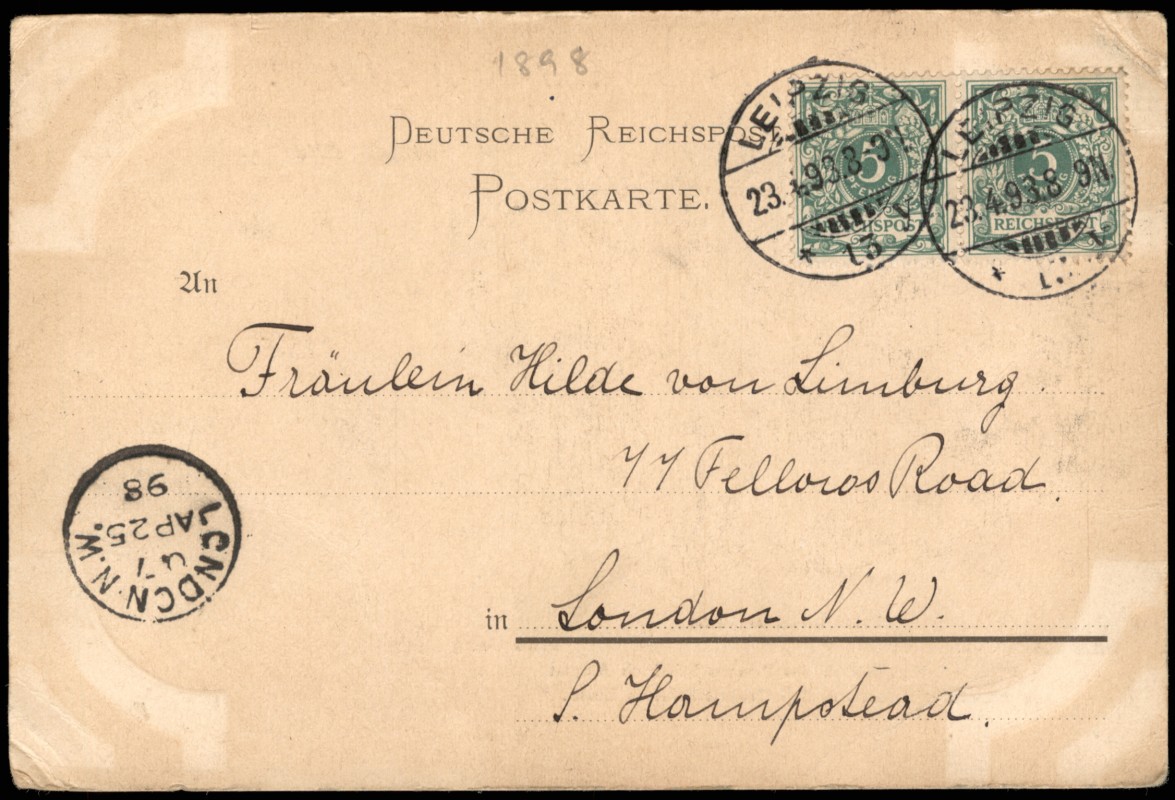 1898
DEUTSCHE REICHSPOST
POSTKARTE.
LEIPZIG
23.4.98.8-9N
* 13
LEIPZIG
23.4.98.8-9N
*
5
PFENNIG
REICHSPOST
5
PFENNIG
REICHSPOST
An
Fräulein Hilde von Limburg.
77 Fellows Road.
LONDON. N.W.
AP 25
98
in London N. W.
S. Hampstead.